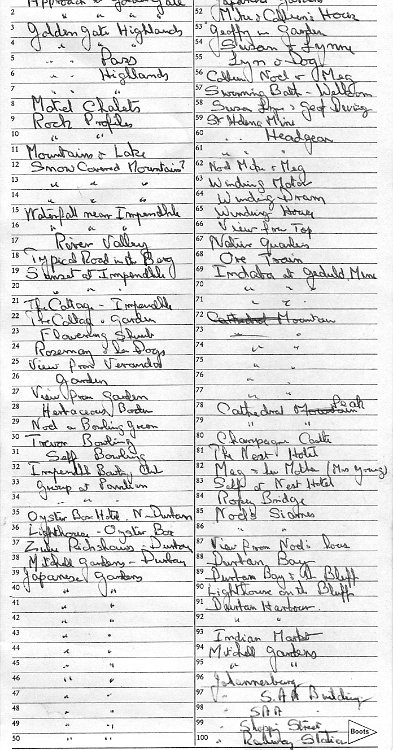 2
3 Golden Gate Highlands
4 " "
5 " Pass
6 " Highlands
7 "
8 Motel Chalets
9 Rock Profiles
10 " "
11 Mountains & Lake
12 Snow Covered Mountains?
13 " " "
14 " " "
15 Waterfall near Impendhle
16 " "
17 River Valley
18 Typical Road in the Berg
19 Sunset at Impendhle
20 " " "
21 The Cottage - Impendhle
22 The Cottage & Garden
23 Flowering Shrub
24 Rosemary & the Dogs
25 View from Verandah
26 Garden
27 View from Garden
28 Herbaceous Border
29 Noel on Bowling Green
30 Trevor Bowling
31 Self Bowling
32 Impendhle Club
33 Group at Pavilion
34 " "
35 Oyster Box Hotel, N. Durban
36 Lighthouse - Oyster Box
37 Zulu Rickshaws - Durban
38 Mitchell Gardens - Durban
39 Japanese Gardens
40 " "
41 " "
42 " "
43 " "
44 " "
45 " "
46 " "
47 " "
48 " "
49 " "
50 " "
52 House
53 Geoffrey in Garden
54 Susan & Lynne
55 Lyn & Dog
56 Noel & Meg
57 Swimming Bath - Welkom
58 Susan Lyn & Geof Diving
59 St Helena Mine
60 " " Headgear
61 " "
62 Noel Mike & Meg
63 Winding Motor
64 Winding Drum
65 Winding House
66 View from Top
67 Native Quarters
68 Ore Train
69 Indaba at Geduld Mine
70 " " "
71 " "
72 Mountain
73 " "
74 " "
75 "
76 " "
77 " "
78 Cathedral Peak
79 " "
80 Champagne Castle
81 The Nest Hotel
82 Meg & her Mother (Mrs Young)
83 Self at Nest Hotel
84 Rope Bridge
85 Noel's
86 " "
87 View from Noel's house
88 Durban Bay
89 Durban Bay & Bluff
90 Lighthouse on the Bluff
91 Durban Harbour
92 " "
93 Indian Market
94 Mitchell Gardens
95 " "
96 Johannesburg
97 " S.A.A Building
98 " SAA
99 " Street
100 " Railway Station
Boots